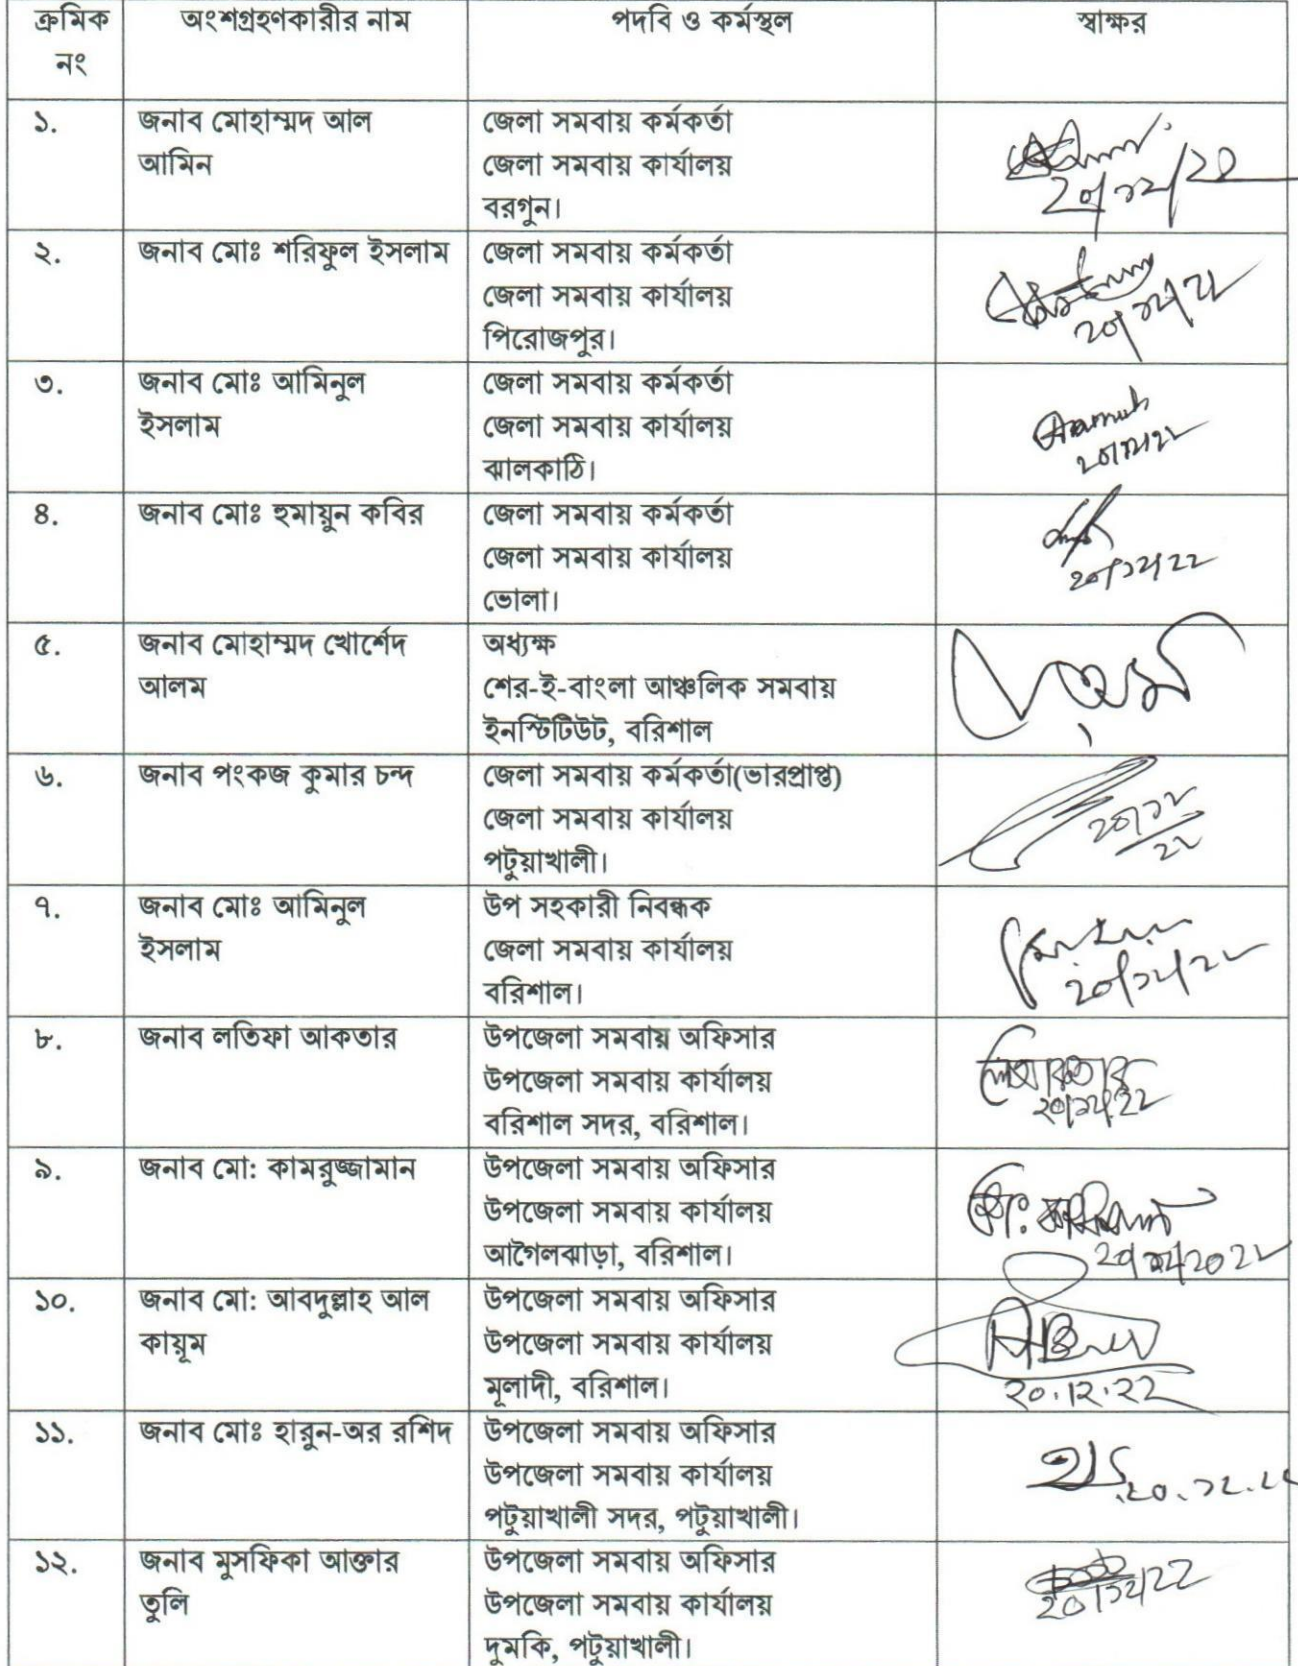 ক্রমিক নং | অংশগ্রহণকারীর নাম | পদবি ও কর্মস্থল | স্বাক্ষর
১. জনাব মোহাম্মদ আল জেলা সমবায় কর্মকর্তা
আমিন জেলা সমবায় কার্যালয়
বরগুন।
20/১২/22
২. জনাব মোঃ শরিফুল ইসলাম জেলা সমবায় কর্মকর্তা
জেলা সমবায় কার্যালয়
পিরোজপুর।
২০/১২/২২
৩. জনাব মোঃ আমিনুল জেলা সমবায় কর্মকর্তা
ইসলাম জেলা সমবায় কার্যালয়
ঝালকাঠি।
২০/১২/২২
৪. জনাব মোঃ হুমায়ুন কবির জেলা সমবায় কর্মকর্তা
জেলা সমবায় কার্যালয়
ভোলা।
২০/১২/২২
৫. জনাব মোহাম্মদ খোর্শেদ অধ্যক্ষ
আলম শের-ই-বাংলা আঞ্চলিক সমবায়
ইনস্টিটিউট, বরিশাল
৬. জনাব পংকজ কুমার চন্দ জেলা সমবায় কর্মকর্তা(ভারপ্রাপ্ত)
জেলা সমবায় কার্যালয়
পটুয়াখালী।
২০/১২
২২
৭. জনাব মোঃ আমিনুল উপ সহকারী নিবন্ধক
ইসলাম জেলা সমবায় কার্যালয়
বরিশাল।
২০/১২/২২
৮. জনাব লতিফা আকতার উপজেলা সমবায় অফিসার
উপজেলা সমবায় কার্যালয়
বরিশাল সদর, বরিশাল।
২০/১২/২২
৯. জনাব মো: কামরুজ্জামান উপজেলা সমবায় অফিসার
উপজেলা সমবায় কার্যালয়
আগৈলঝাড়া, বরিশাল।
২০/১২/২০২২
১০. জনাব মো: আবদুল্লাহ আল উপজেলা সমবায় অফিসার
কায়ূম উপজেলা সমবায় কার্যালয়
মূলাদী, বরিশাল।
২০.12.22
১১. জনাব মোঃ হারুন-অর রশিদ উপজেলা সমবায় অফিসার
উপজেলা সমবায় কার্যালয়
পটুয়াখালী সদর, পটুয়াখালী।
২০.১২.২২
১২. জনাব মুসফিকা আক্তার উপজেলা সমবায় অফিসার
তুলি উপজেলা সমবায় কার্যালয়
দুমকি, পটুয়াখালী।
২০/১২/২২